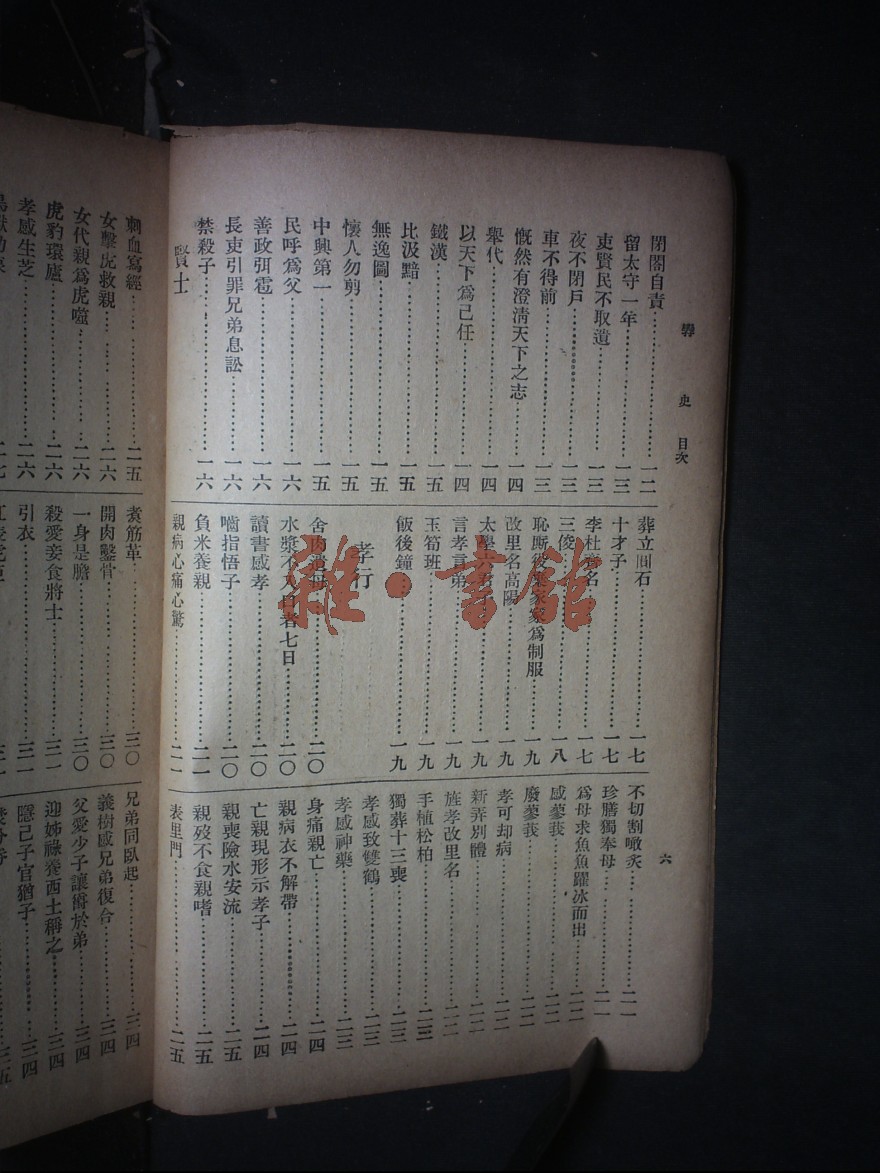 史 目次
六
閉閤自責 一二
留太守一年 一三
吏賢民不取遺 一三
夜不閉戶 一三
車不得前 一三
慨然有澄淸天下之志 一四
舉代 一四
以天下爲己任 一四
鐵漢 一五
比汲黯 一五
無逸圖 一五
懷人勿剪 一五
中興第一 一五
民呼爲父 一六
善政弭雹 一六
長吏引罪兄弟息訟 一六
禁殺子 一六
賢士
葬立圓石 一七
十才子 一七
李杜齊名 一七
三俊 一八
家爲制服 一九
改里名高陽 一九
太學六君子 一九
言孝言弟 一九
玉筍班 一九
飯後鐘 一九
孝行
舍肉遺母 二〇
水漿不入口者七日 二〇
讀書感孝 二〇
嚙指悟子 二〇
負米養親 二一
親病心痛心驚 二一
不切割噉炙 二一
珍膳獨奉母 二一
爲母求魚魚躍冰而出 二二
感蓼莪 二二
廢蓼莪 二二
孝可却病 二二
新弄別體 二二
旌孝改里名 二二
手植松柏 二三
獨葬十三喪 二三
孝感致雙鶴 二三
孝感神藥 二三
身痛親亡 二四
親病衣不解帶 二四
亡親現形示孝子 二四
親喪險水安流 二五
親歿不食親嗜 二五
表里門 二五
刺血寫經 二五
女擊虎救親 二六
女代親爲虎噬 二六
虎豹環廬 二六
孝感生芝 二六
煮筋革 三〇
開肉鑿骨 三〇
一身是膽 三〇
殺愛妾食將士 三一
引衣 三一
兄弟同臥起 三四
義樹感兄弟復合 三四
父愛少子讓爵於弟 三四
迎姊祿養西土稱之 三四
隱己子官猶子 三四
雜·書館